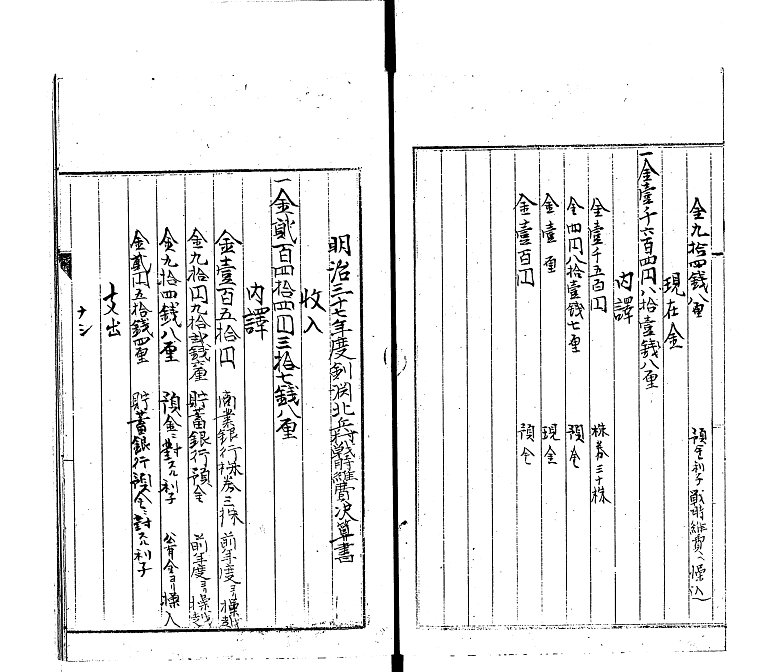 金九拾四銭八厘 預金利子戦時維費ヘ操込
現在金
一金壹千六百四円八拾壹銭八厘
内譯
金壹千五百円 株券三十株
金四円八拾壹銭七厘 預金
金壹厘 現金
金壹百円 預金
明治三十七年度剣渕北兵村戦時維費决算書
收入
一金貮百四拾四円三拾七銭八厘
内譯
金壹百五拾円 商業銀行株券三株 前年度ヨリ操越
金九拾円九拾貮銭六厘 貯蓄銀行預金 前年度ヨリ操越
金九拾四銭八厘 預金ニ對スル利子 公有金ヨリ操入
金貮円五拾銭四厘 貯蓄銀行預金ニ對スル利子
支出
ナシ